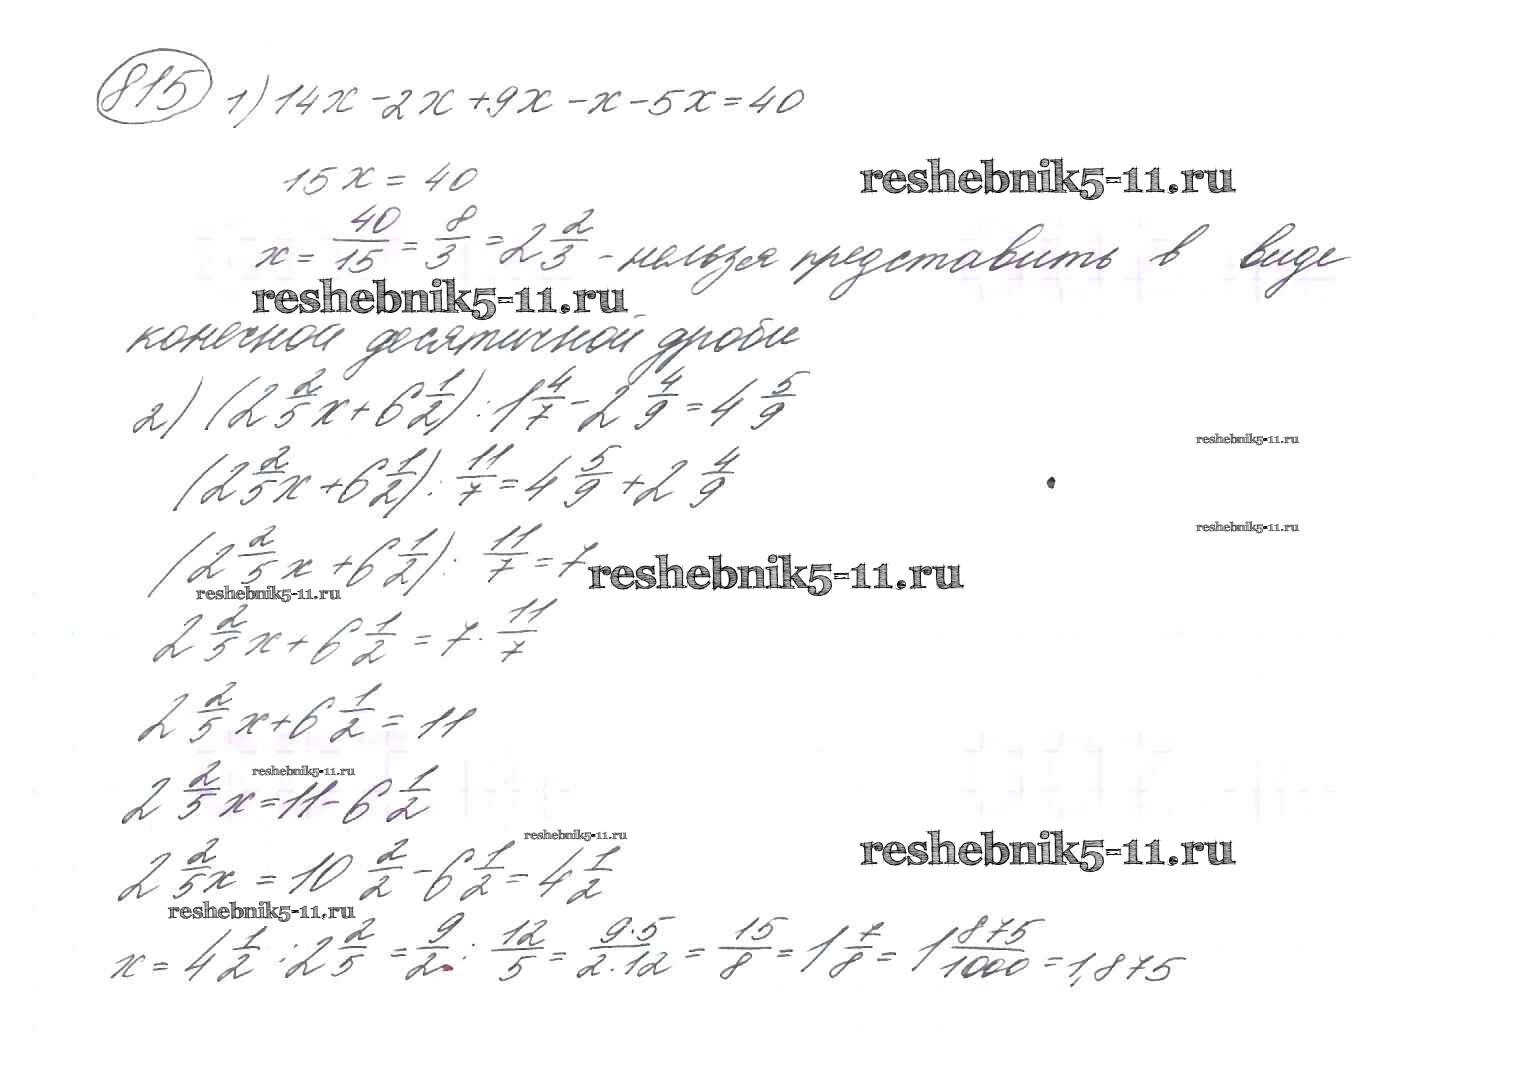 815 1) 14x - 2x + 9x - x - 5x = 40
15x = 40
reshebnik5-11.ru
x = 40/15 = 8/3 = 2 2/3 - нельзя представить в виде
reshebnik5-11.ru
конечной десятичной дроби
2) (2 2/5 x + 6 1/2) : 1 4/7 - 2 4/9 = 4 5/9
reshebnik5-11.ru
(2 2/5 x + 6 1/2) : 11/7 = 4 5/9 + 2 4/9
reshebnik5-11.ru
(2 2/5 x + 6 1/2) : 11/7 = 7
reshebnik5-11.ru
reshebnik5-11.ru
2 2/5 x + 6 1/2 = 7 · 11/7
2 2/5 x + 6 1/2 = 11
reshebnik5-11.ru
2 2/5 x = 11 - 6 1/2
reshebnik5-11.ru
reshebnik5-11.ru
2 2/5 x = 10 2/2 - 6 1/2 = 4 1/2
reshebnik5-11.ru
x = 4 1/2 : 2 2/5 = 9/2 : 12/5 = 9·5/2·12 = 15/8 = 1 7/8 = 1 875/1000 = 1,875